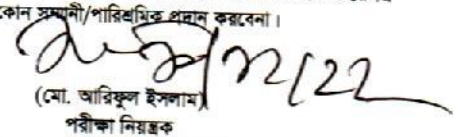 কোন সম্মানী/পারিশ্রমিক প্রদান করবেনা।
(মো. আরিফুল ইসলাম)
পরীক্ষা নিয়ন্ত্রক